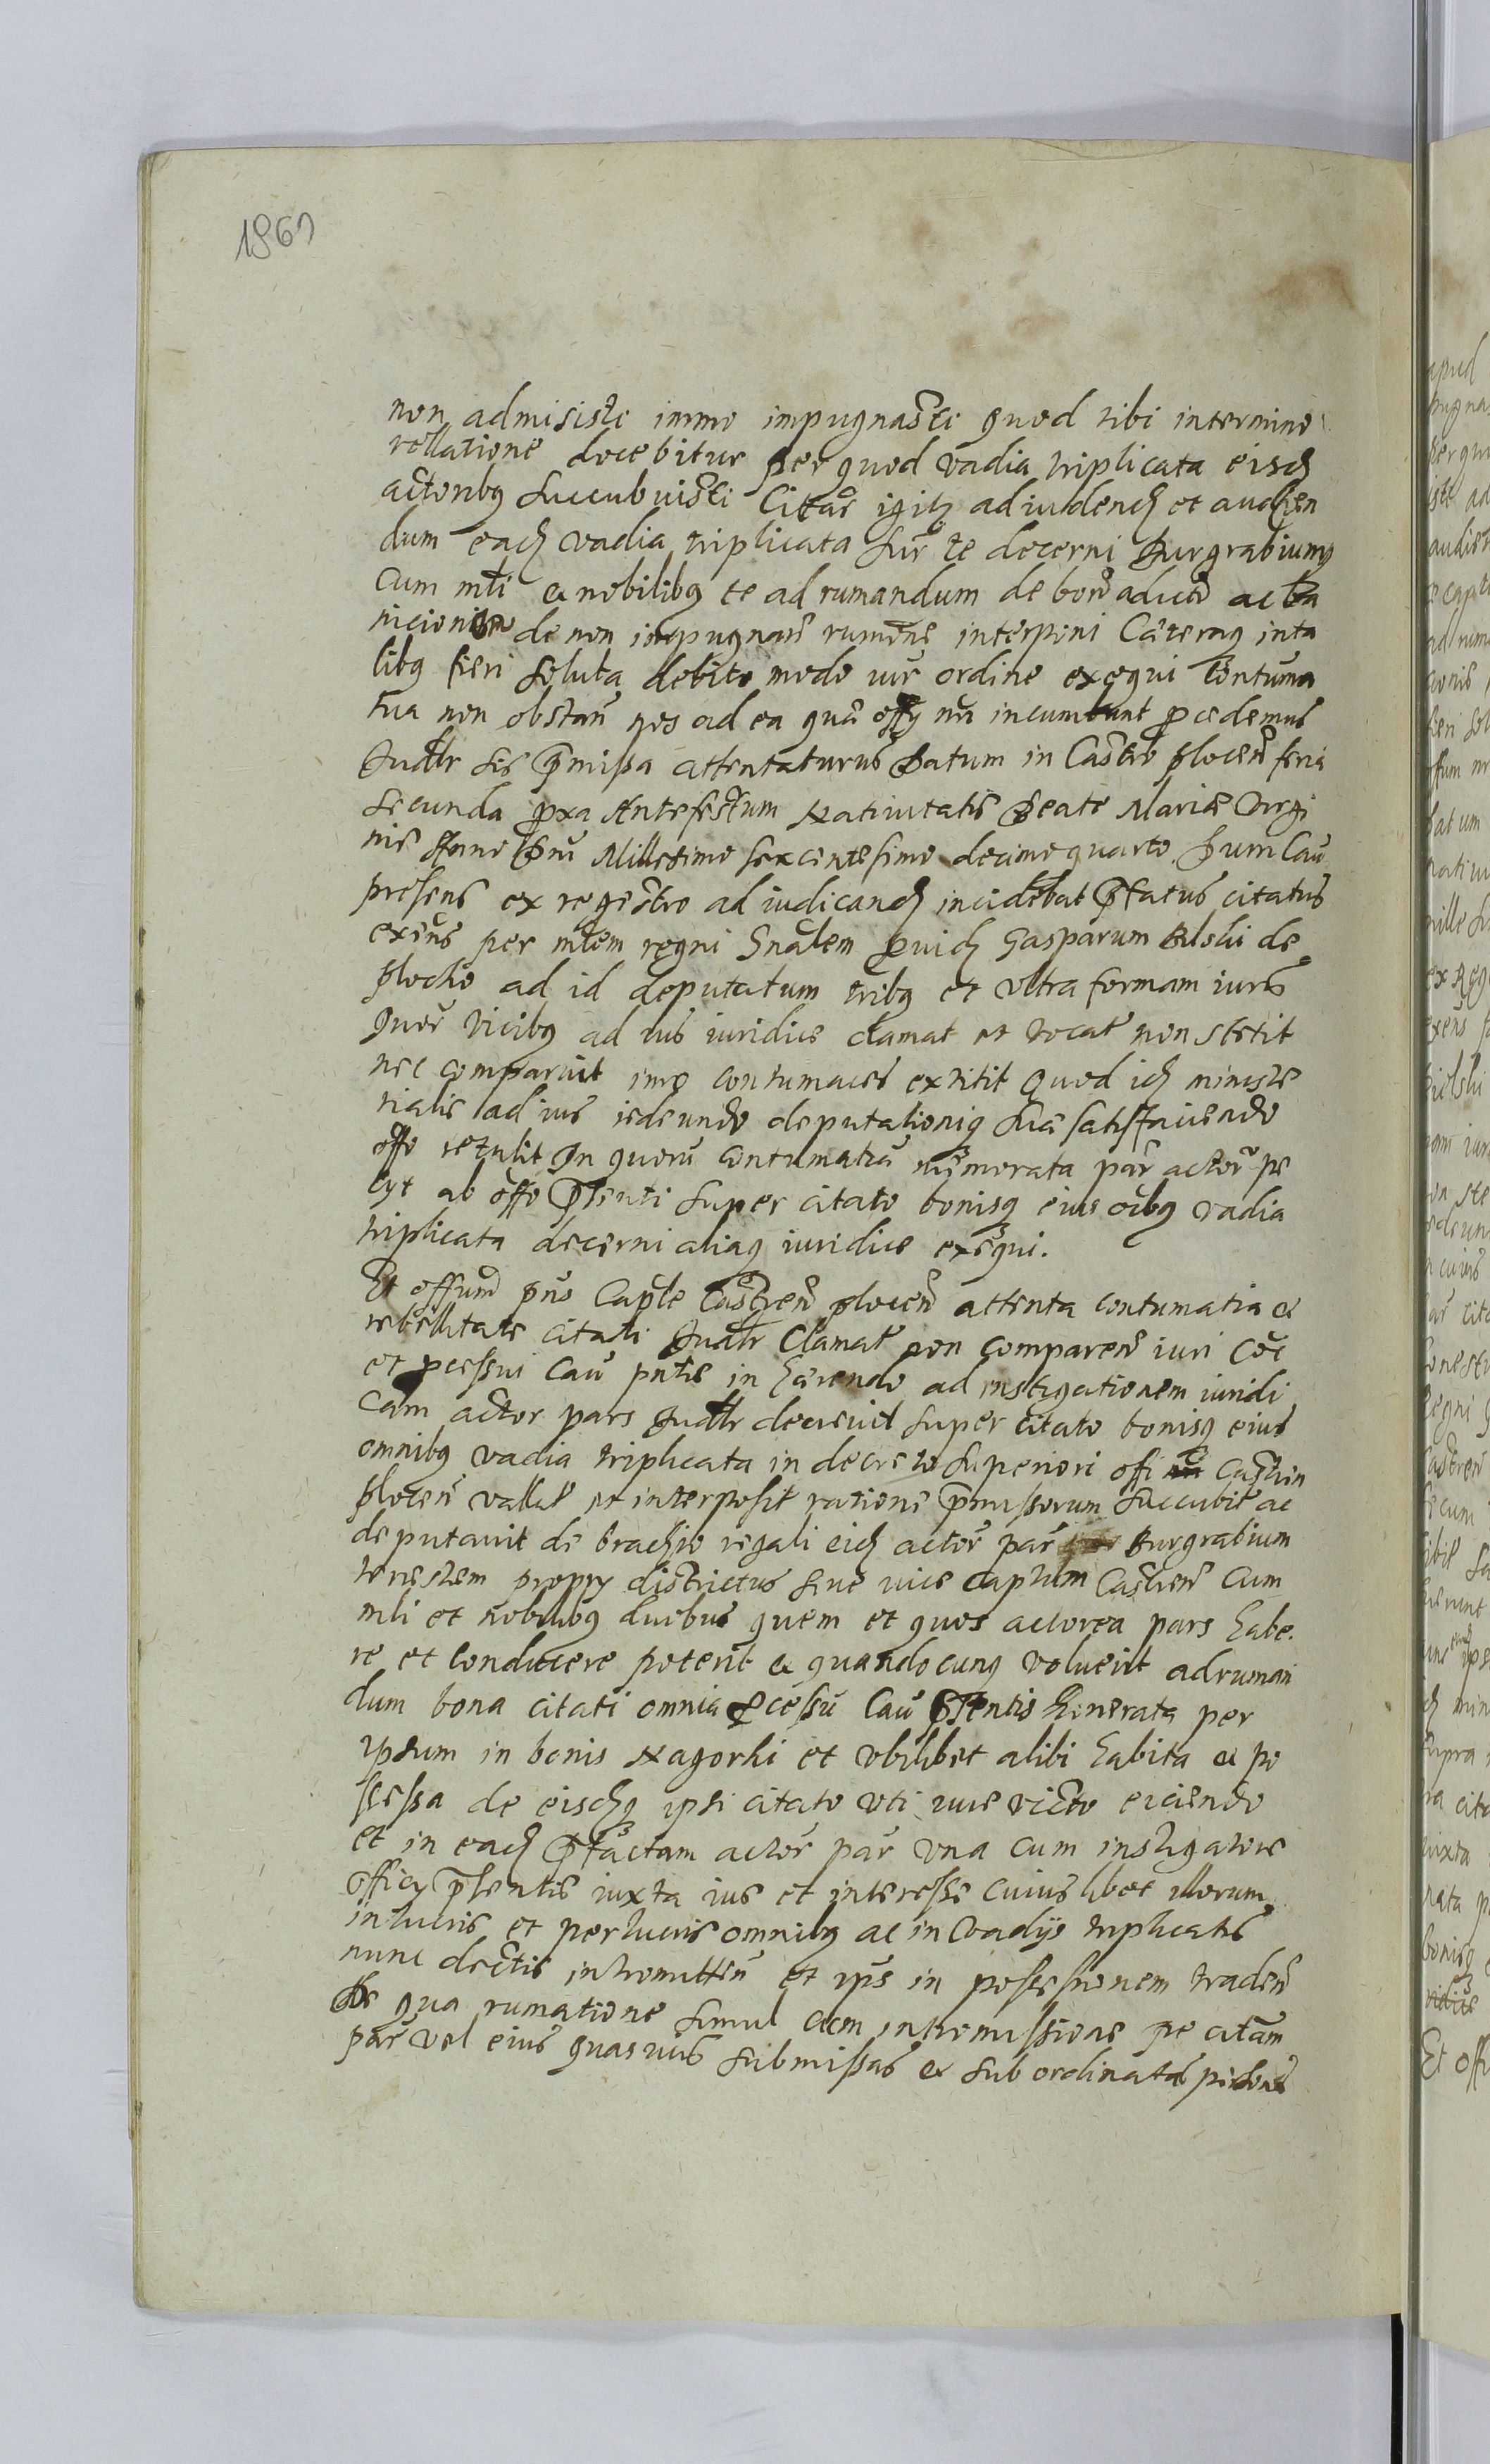 1867
non admisisti immo impugnasti quod tibi intermino
rellatione docebitur per quod vadia triplicata eisd
actoribq succubuisti Citar igitz ad iudend et audien
dum ead vadia triplicata sur te decerni Burgrabiumq
Cum mli & nobilibq te ad rumandum de bon adict
de non impugnan rumone interponi Caeteraq inta
libq fieri soluta debito modo iur ordine exequi Contuma
tua non obstan nos ad ea qua offy nri incumbunt pcedemus
Iudlr sis pmissa attentaturus Datum in Castro plocen feria
secunda pxa Antefestum Nativitatis Beate Mariae Virgi
nis Anno Dni Millesimo sexcentesimo decimoquarto Dum Cau
presens ex regestro ad iudicand incidebat Pfatus citatus
exens per mlem regni Gnalem pvid Gasparum Bilski de
plocko ad id deputatum tribq et ultra formam iuris
quor vicibq ad ius iuridice clamat et vocat non stetit
nec comparuit imo contumaces extitit Quod id ministe
rialis ad ius redeundo deputationiq sua satisfaciendo
offo retulit In quoru contumatia memorata par actor pe
cyt ab offo pnti super citato bonisq eius oibq vadia
triplicata decerni aliaq iuridice exequi.
Et offium pns Caple Castren plocen attenta contumatia &
rebellitate citati Iudlr Clamat non comparen iuri
et pcessui Cau pntis in haerendo ad instigationem iuridi
cam actor pars Iudlr decrevit super citato bonisq eius
omnibq vadia triplicata in decreto superiori offi Castren
plocen vallat et interposit ratione pmissorum succubit ac
deputavit de brachio regali eid actor par Burgrabium
terrestem proppy districtus sive vice captum Castren Cum
mli et nobilibq duobus quem et quos actorea pars habe
re et conducere poterit & quandocunq voluerit adruman
dum bona citati omnia pcessu Cau pntis per
ipsum in bonis Nagorki et ubilibet alibi habita & po
ssessa de eisdq ipsi citato uti iure victo eiciendo
et in ead pfactam actor par una cum instigatore
officy psentis iuxta ius et interesse cuiuslibet illorum
in lucris et perlucris omnibq ac in vadijs triplicatis
nunc dectis intromitten et ips in possessionem traden
De qua rumatione simul cum intromissione pe citam
par vel eius quasvis submissas & subordinatas psonas